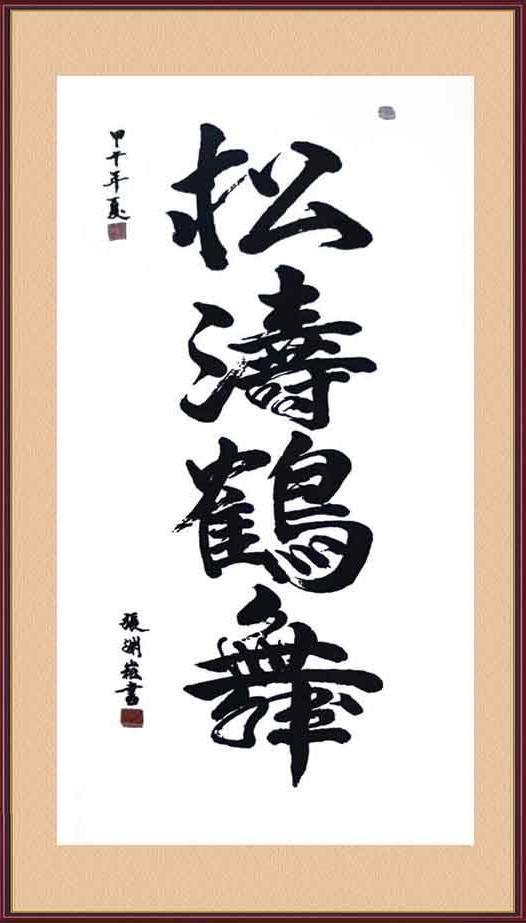 松濤鶴舞
甲午年夏
張渊崧書